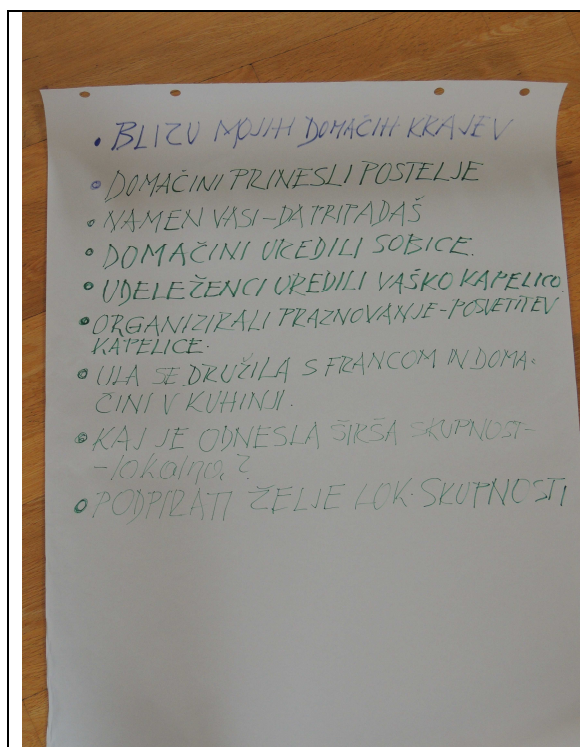 • BLIZU MOJIH DOMAČIH KRAJEV
• DOMAČINI PRINESLI POSTELJE
• NAMEN VASI-DA PRIPADAŠ
• DOMAČINI UREDILI SOBICE.
• UDELEŽENCI UREDILI VAŠKO KAPELICO.
• ORGANIZIRALI PRAZNOVANJE-POSVETITEV
KAPELICE.
• ULA SE DRUŽILA S FRANCOM IN DOMA-
ČINI V KUHINJI.
• KAJ JE ODNESLA ŠIRŠA SKUPNOST-
-lokalna?
• PODPIRATI ŽELJE LOK. SKUPNOSTI